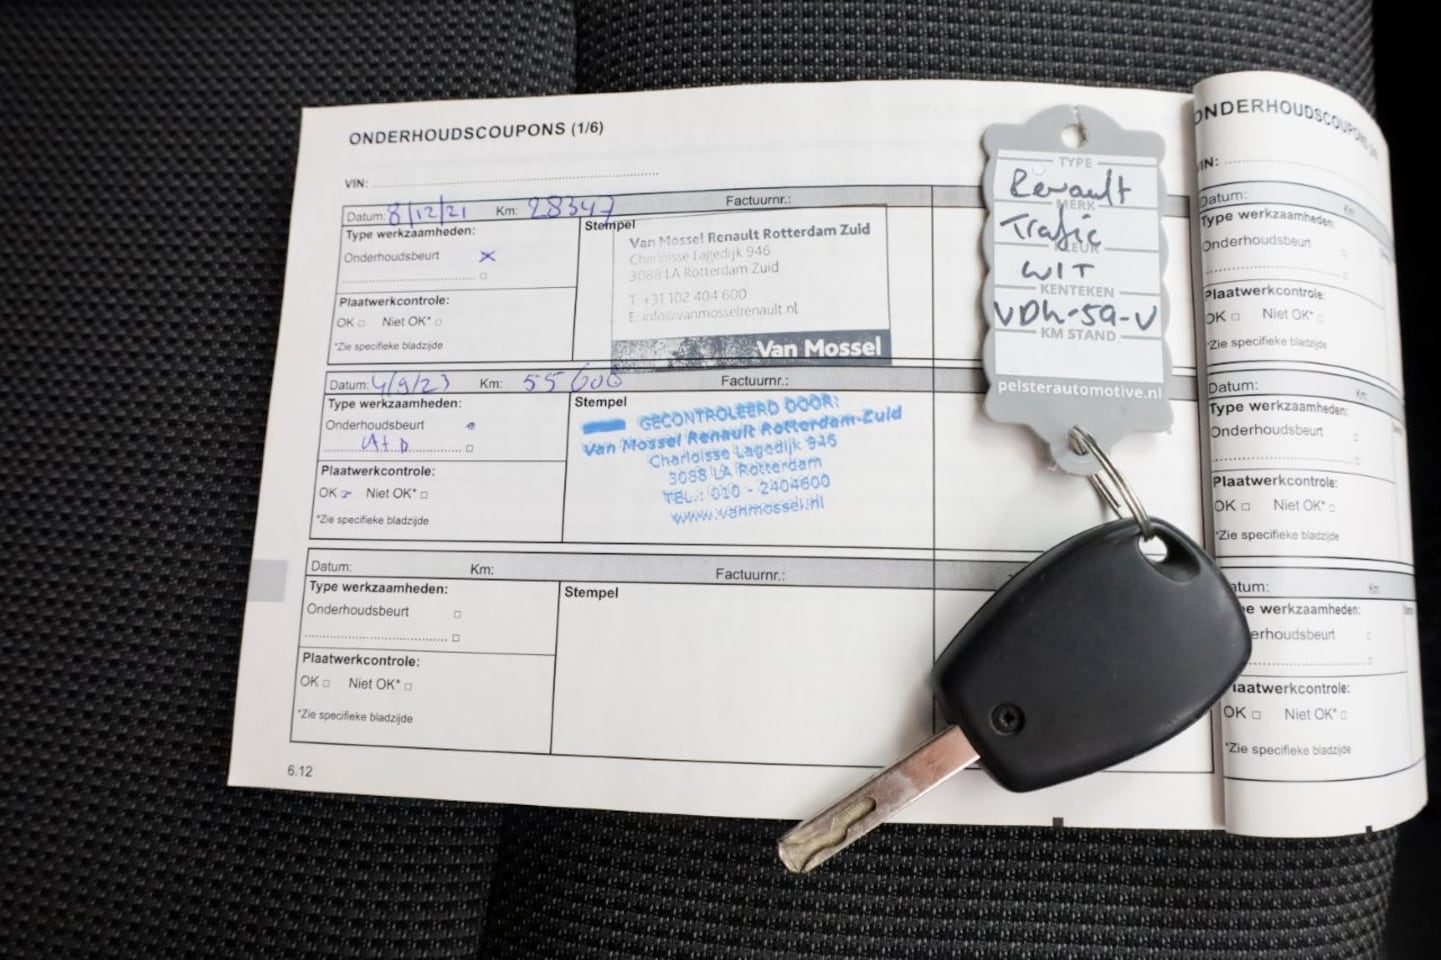 ONDERHOUDSCOUPONS (1/6)
VIN:
Datum: 8/12/21 Km: 28347 Factuurnr.:
Type werkzaamheden:
Onderhoudsbeurt
Plaatwerkcontrole:
OK Niet OK*
*Zie specifieke bladzijde
Stempel
Van Mossel Renault Rotterdam Zuid
Charloisse Lagedijk 946
3088 LA Rotterdam Zuid
T: +31 102 404 600
E: info@vanmosselrenault.nl
Van Mossel
Datum: 4/9/23 Km: 55600 Factuurnr.:
Type werkzaamheden:
Onderhoudsbeurt
Plaatwerkcontrole:
OK Niet OK*
*Zie specifieke bladzijde
Stempel
GECONTROLEERD DOOR:
Van Mossel Renault Rotterdam-Zuid
Charloisse Lagedijk 946
3088 LA Rotterdam
TEL.: 010 - 2404600
www.vanmossel.nl
Datum: Km: Factuurnr.:
Type werkzaamheden:
Onderhoudsbeurt
Plaatwerkcontrole:
OK Niet OK*
*Zie specifieke bladzijde
Stempel
6.12
TYPE
Renault
MERK
Trafic
KLEUR
WIT
KENTEKEN
VDK-59-V
KM STAND
pelsterautomotive.nl
ONDERHOUDSCOUPONS
VIN:
Datum: Km:
Type werkzaamheden:
Onderhoudsbeurt
Plaatwerkcontrole:
OK Niet OK*
*Zie specifieke bladzijde
Datum: Km:
Type werkzaamheden:
Onderhoudsbeurt
Plaatwerkcontrole:
OK Niet OK*
*Zie specifieke bladzijde
atum: Km:
pe werkzaamheden:
erhoudsbeurt
laatwerkcontrole:
OK Niet OK*
*Zie specifieke bladzijde